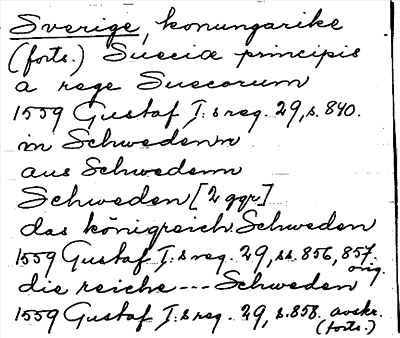 Sverige, konungarike
(forts.) Sueciæ principis
a rege Suecorum
1559 Gustaf I:s reg. 29, s. 840.
in Schwedenn
aus Schwedenn
Schweden [2 ggr]
das königreich Schweden
1559 Gustaf I:s reg. 29, ss. 856, 857. orig.
die reiche --- Schweden
1559 Gustaf I:s reg. 29, s. 858. avskr.
(forts.)